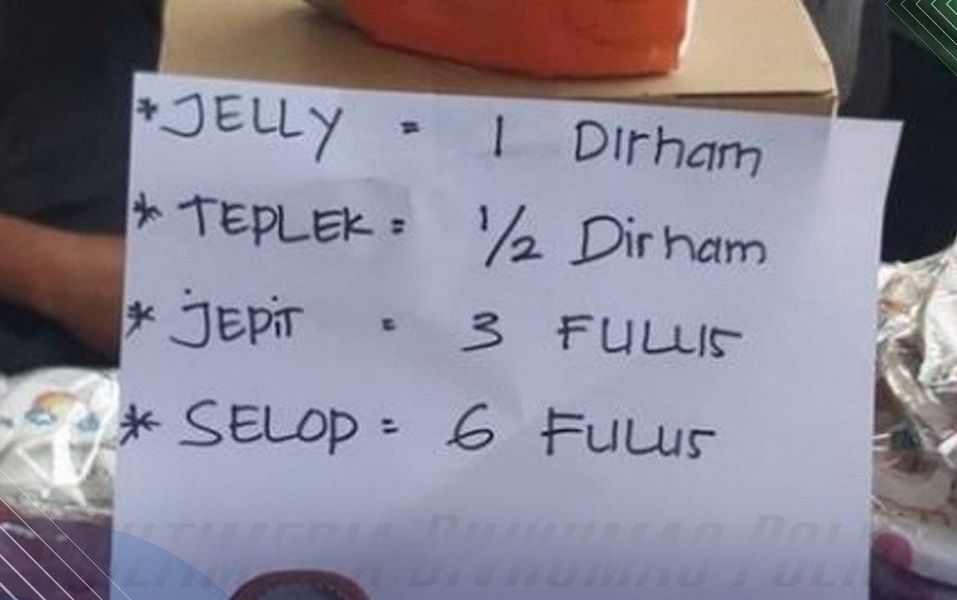 * JELLY = 1 Dirham
* TEPLEK = 1/2 Dirham
* JEPiT = 3 FULUS
* SELOP = 6 FULUS
MULTIMEDIA DIVHUMAS POLRI